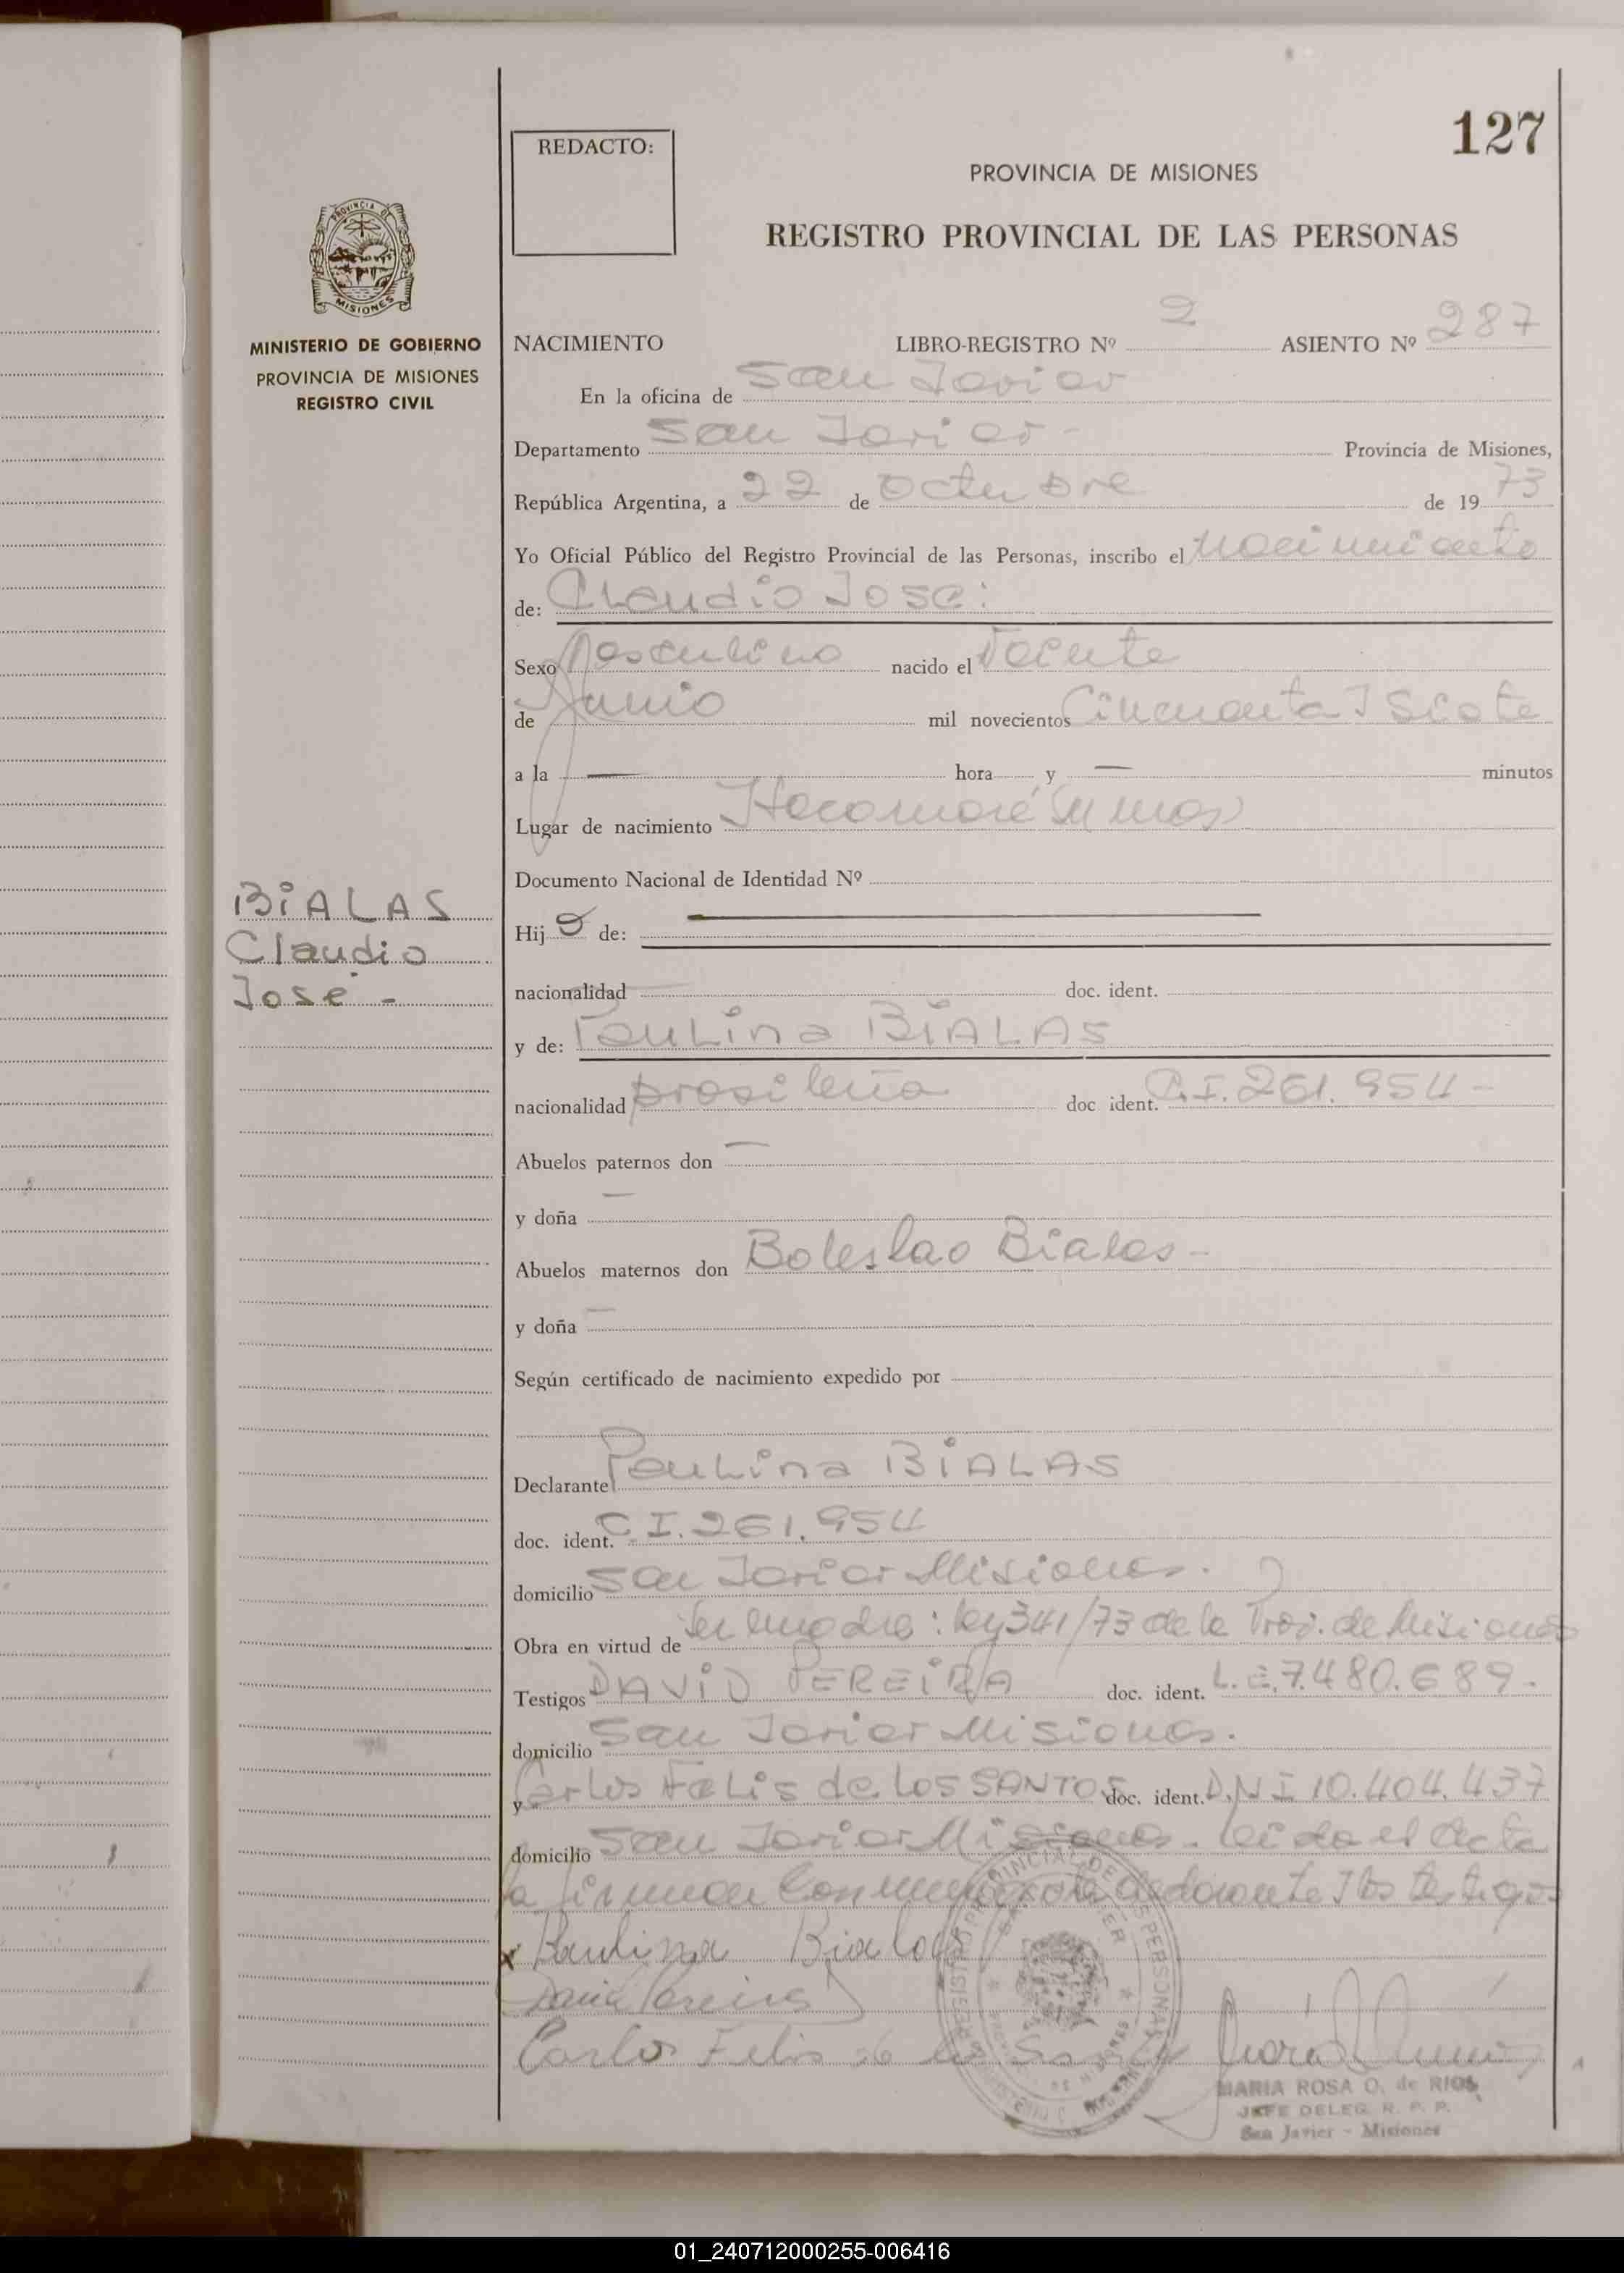 127
REDACTO:
PROVINCIA DE MISIONES
REGISTRO PROVINCIAL DE LAS PERSONAS
PROVINCIA DE
MISIONES
MINISTERIO DE GOBIERNO
PROVINCIA DE MISIONES
REGISTRO CIVIL
NACIMIENTO LIBRO-REGISTRO Nº 2 ASIENTO Nº 287
En la oficina de San Javier
Departamento San Javier - Provincia de Misiones,
República Argentina, a 22 de Octubre de 1973
Yo Oficial Público del Registro Provincial de las Personas, inscribo el nacimiento
de: Claudio Jose:
Sexo Masculino nacido el Veinte
de Junio mil novecientos Cincuenta y Siete
a la — hora y — minutos
Lugar de nacimiento
Documento Nacional de Identidad Nº
BiALAS
Claudio
José -
Hijo de:
nacionalidad doc. ident.
y de: Paulina BiALAS
nacionalidad brasileña doc ident. C.I. 261.954 -
Abuelos paternos don —
y doña —
Abuelos maternos don Boleslao Bialas -
y doña —
Según certificado de nacimiento expedido por
Declarante Paulina BiALAS
doc. ident. C.I. 261.954
domicilio San Javier Misiones.
Obra en virtud de Ser madre: ley 341/73 de la Prov. de Misiones
Testigos DAViD PEREiRA doc. ident. L.E. 7.480.689.
domicilio San Javier Misiones.
y Carlos FeLis de Los SANTOS doc. ident. D.N.I 10.404.437
domicilio San Javier Misiones. leida el Acta
la firman conmigo declarante y los testigos
x Paulina Bialas
David Pereira
Carlos Felis de los Santos
MARIA ROSA O. de RIOS
JEFE DELEG. R. P. P.
San Javier - Misiones
01_240712000255-006416